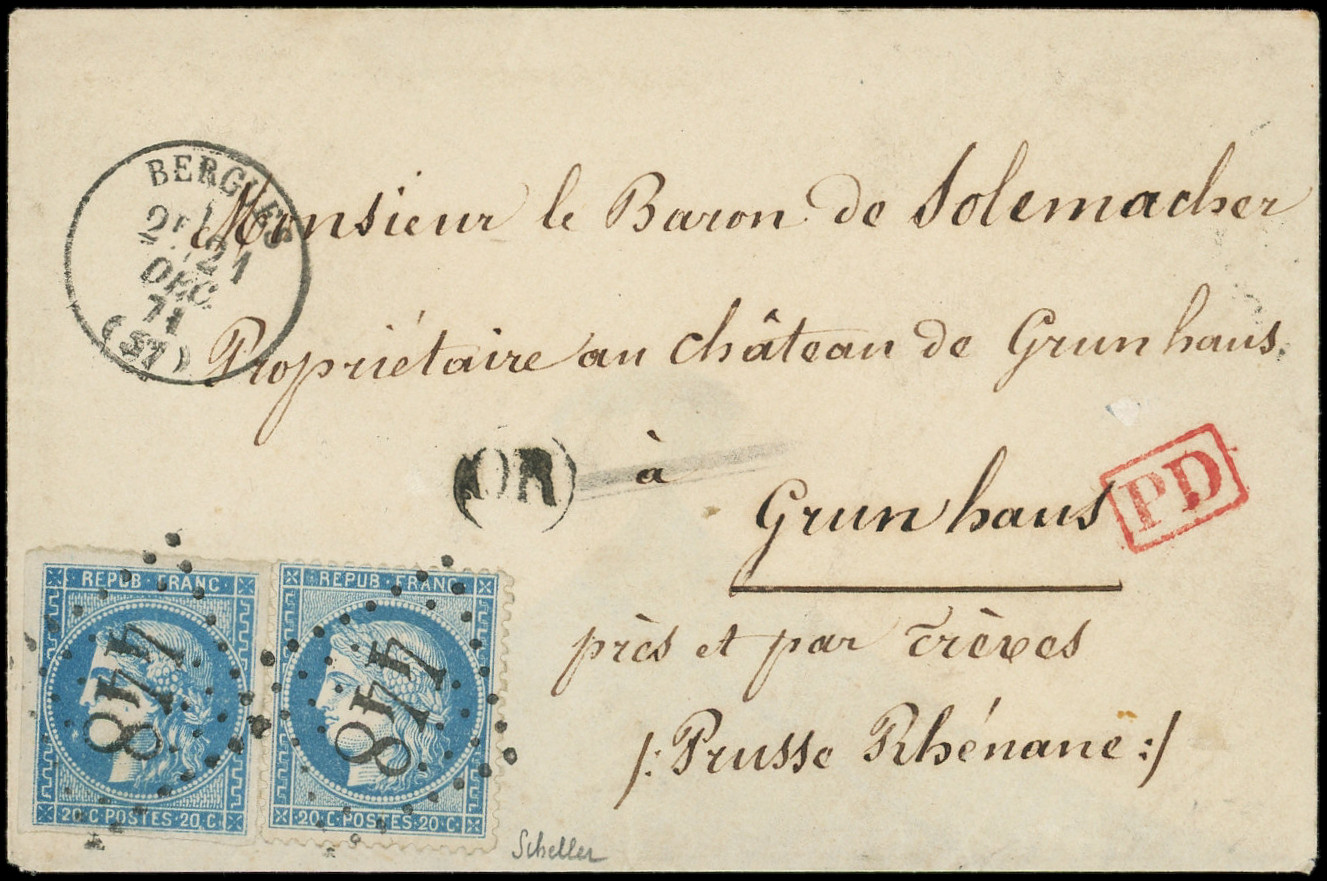 BERGUES
2E
21
DEC.
71
(57)
Monsieur le Baron de Solemacher
Propriétaire au château de Grunhaus.
OR
à
Grunhaus
PD
près et par Trèves
/: Prusse Rhénane :/
REPUB·FRANC
448
20·C·POSTES·20·C·
REPUB·FRANC
448
20·C·POSTES·20·C·
Scheller